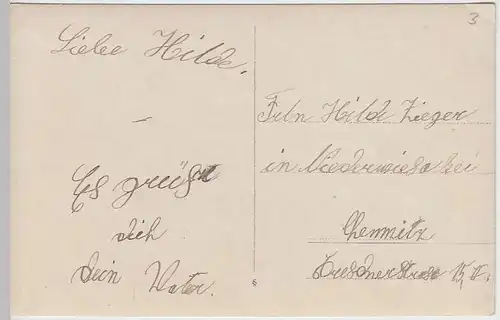 3
Liebe Hilde.
–
Es grüßt
dich
dein Vater.
Frln Hilde Zieger
in Niederwiesa bei
Chemnitz
Dresdnerstrase